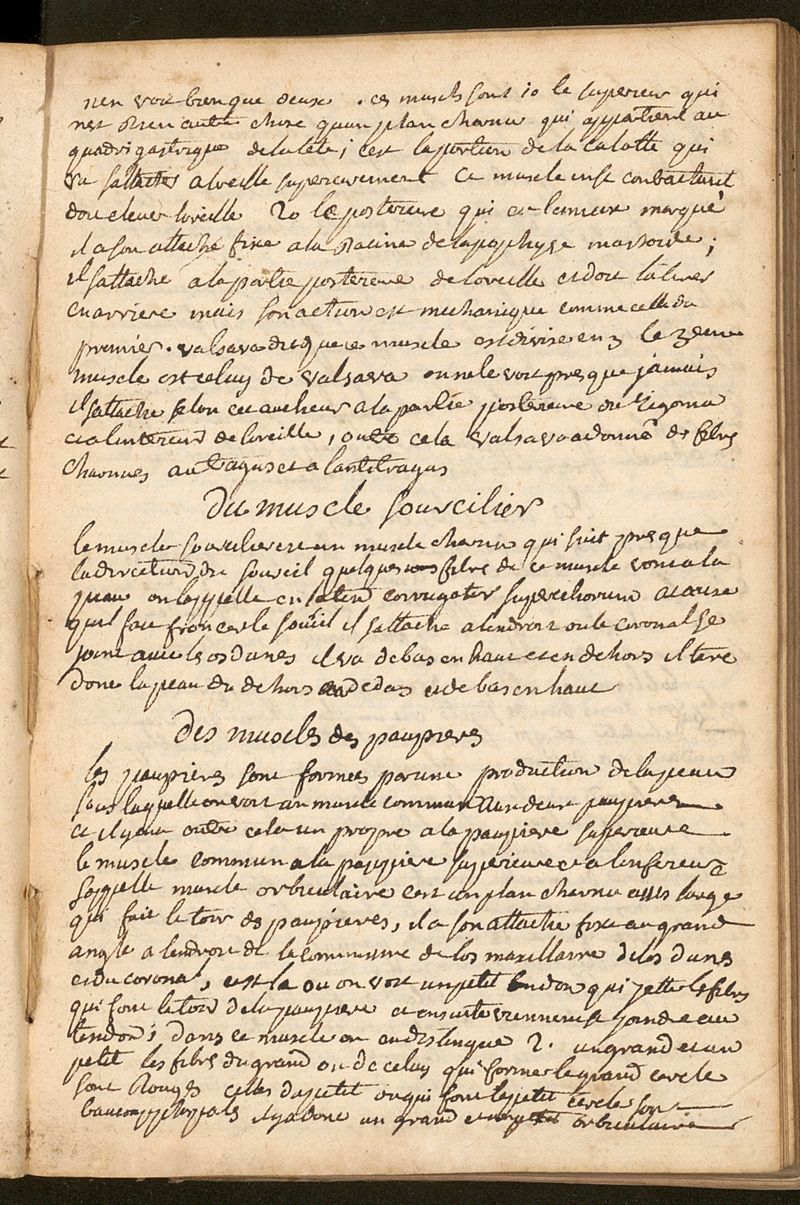 nen voit bien que deux . ces muscls sont 1o le superieur qui
nest Rien autre chose quun plan charnu qui appartient au
quadrigastrique de la tete ; cest la portion de la calotte qui
va sattacher a loreille superieurement ce muscle en se contractant
doit elever loreille 2o le posterieur qui est le mieux marqué
il a son attache fixe a la Racine de lapophyse mastoide ;
il sattache a la partie posterieure de loreille et doit la tirer
en arriere mais son action est mechanique comme celle du
premier . valsava dit que ce muscle est divise en 3 le 3eme
muscle est celuy de valsava on ne le voit presque jamais
il sattache selon cet autheur a la partie posterieure du zigoma
et a linterieur de loreille , outre cela valsava a donné des fibres
charnues au tragus et a lantitragus
Du muscle sourcilier
le muscle sourcilier est un muscle charnu qui suit presque
la direction du sourcil quelques fibres de ce muscle vont a la
peau on lappelle en latin corrugator superciliorum a cause
quil fait froncer le sourcil il sattache a lendroit ou le coronal se
joint avec les os du nes il va de bas en haut et en dehors il tire
donc la peau du dehors en dedans et de bas en haut
des muscles des paupieres
les paupieres sont formees par une production de la peau
sous laquelle on voit un muscle commun aux deux paupieres
et il y en a outre cela un propre a la paupiere superieure
le muscle commun a la paupiere superieure et a linferieure
sappelle muscle orbiculaire cest un plan charnu asses large
qui fait le tour des paupieres , il a son attache fixe au grand
angle a lendroit de la commissure de los maxillaire de los du nes
et du coronal , cest la ou on voit un petit tendon qui jette les fibres
qui font le tour de la paupiere et ensuite viennent se joindre au
tendon ; dans ce muscle on en distingue 2 . un grand et un
petit les fibres du grand ou de celuy qui forme le grand cercle
sont Rouges celles du petit ou qui font le petit cercle sont
beaucoup plus pales il y a donc un grand et un petit orbiculaire